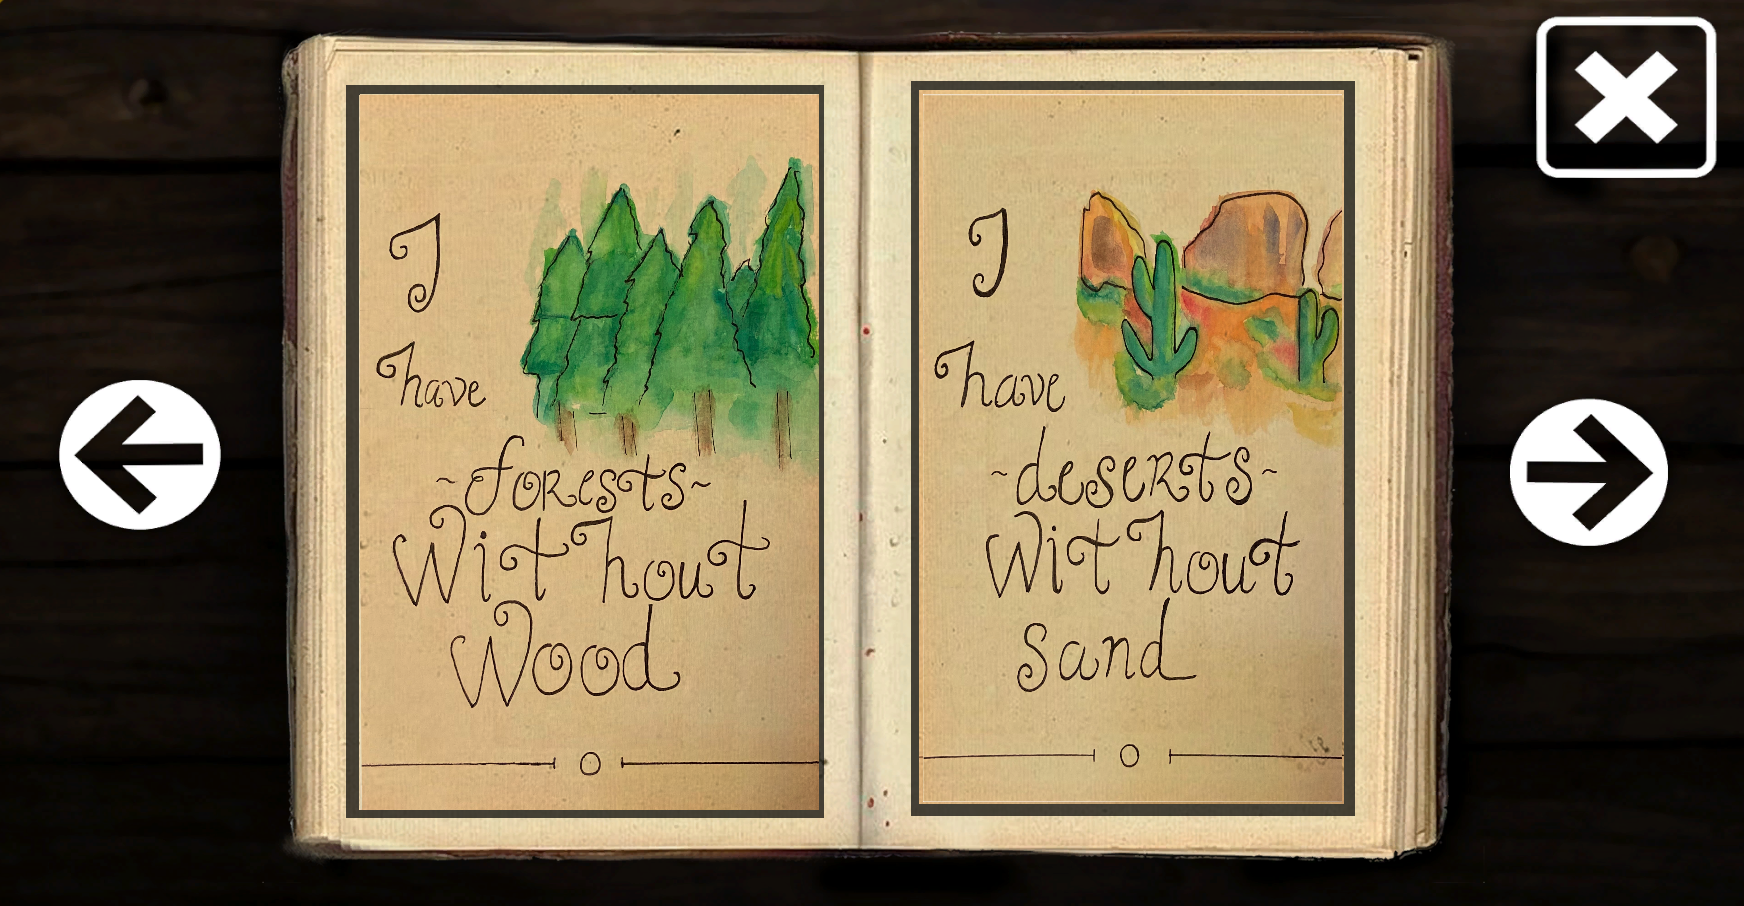 I
have
~forests~
Without
Wood
O
I
have
~deserts~
Without
Sand
O